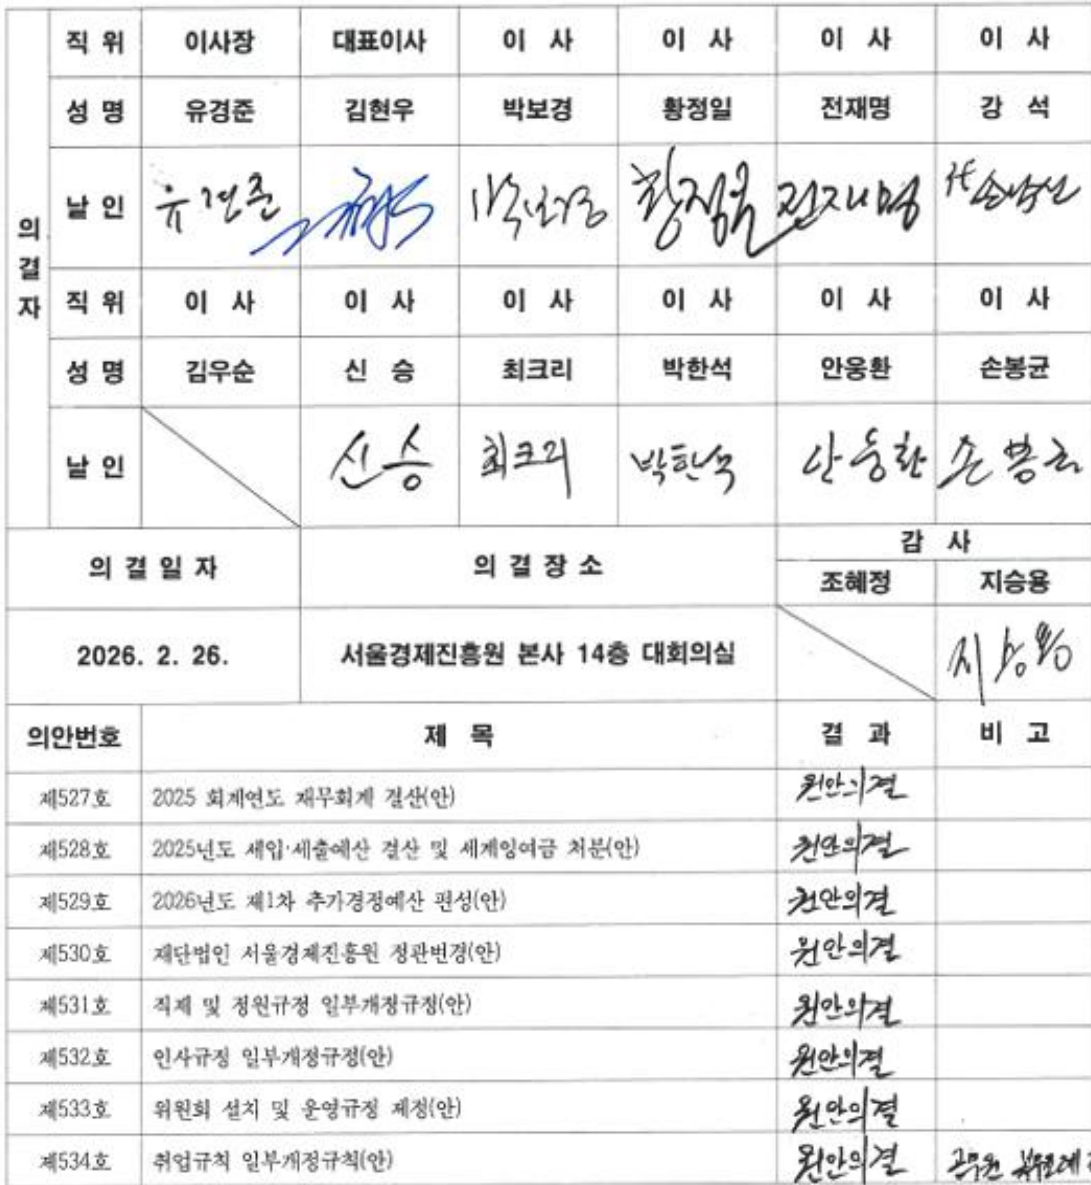 직 위 이사장 대표이사 이 사 이 사 이 사 이 사
성 명 유경준 김현우 박보경 황정일 전재명 강 석
의결자
날 인 유경준 박보경 황정일 전재명
직 위 이 사 이 사 이 사 이 사 이 사 이 사
성 명 김우순 신 승 최크리 박한석 안웅환 손봉균
날 인 신승 최크리 박한석 안웅환 손봉균
의 결 일 자 의 결 장 소 감 사
조혜정 지승용
2026. 2. 26. 서울경제진흥원 본사 14층 대회의실 지승용
의안번호 제 목 결 과 비 고
제527호 2025 회계연도 재무회계 결산(안) 원안의결
제528호 2025년도 세입·세출예산 결산 및 세계잉여금 처분(안) 원안의결
제529호 2026년도 제1차 추가경정예산 편성(안) 원안의결
제530호 재단법인 서울경제진흥원 정관변경(안) 원안의결
제531호 직제 및 정원규정 일부개정규정(안) 원안의결
제532호 인사규정 일부개정규정(안) 원안의결
제533호 위원회 설치 및 운영규정 제정(안) 원안의결
제534호 취업규칙 일부개정규칙(안) 원안의결 공무원